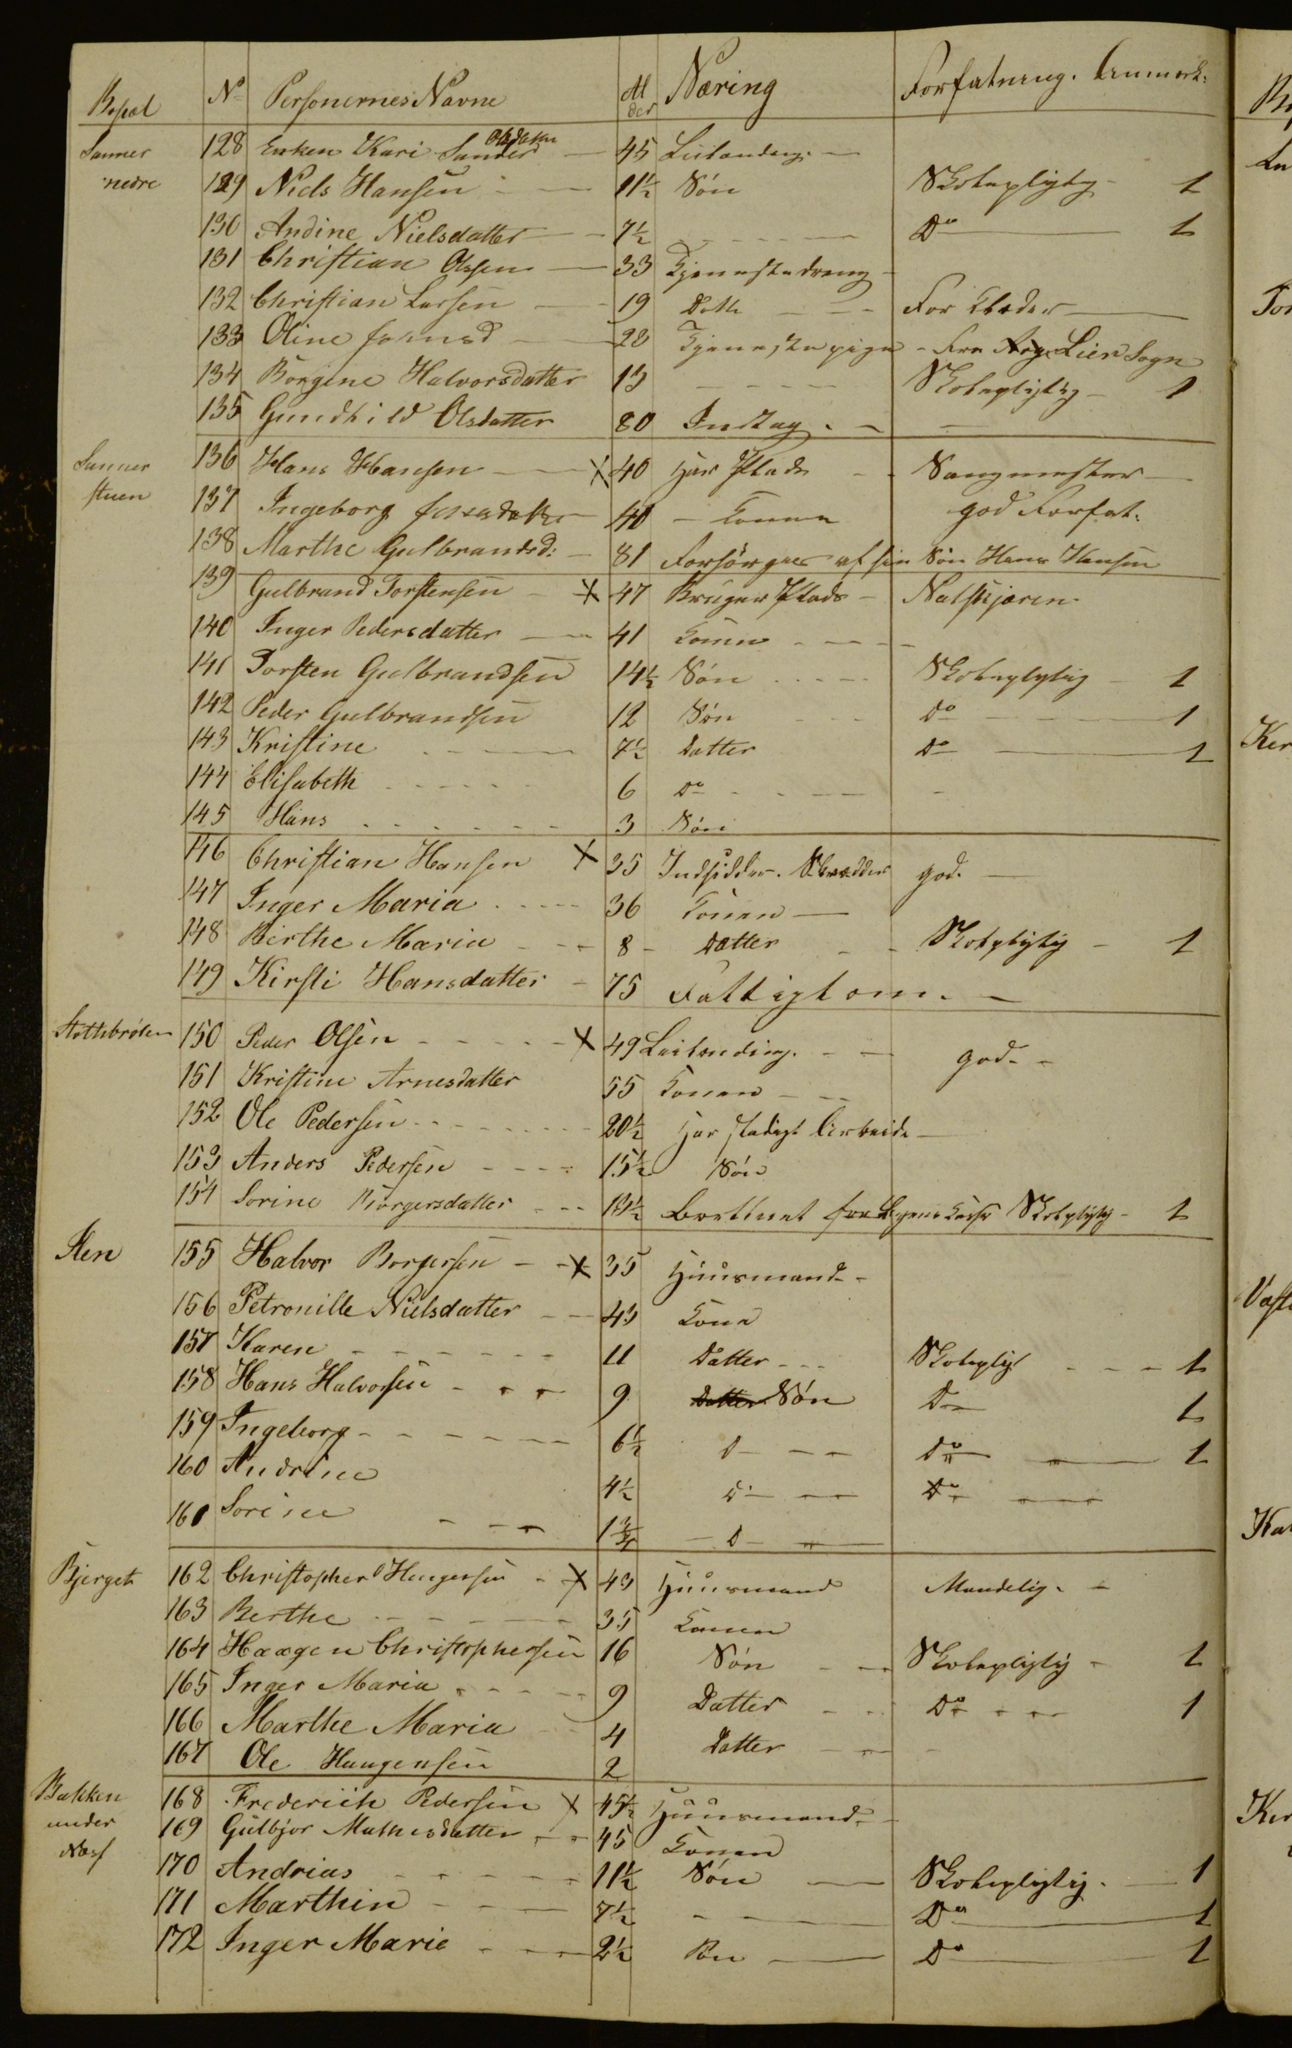 Bopæl No Personernes Navne Alder Næring Forfatning. Anmærk:
Sanner 128 Enken Kari Sander Olsdatter 45 Leilænding.
nedre 129 Niels Hansen 11½ Søn Skolepligtig 1
130 Andine Nielsdatter 7½ Do 1
131 Christian Olsen 33 Tjenestedreng
132 Christian Larsen 19 Dette For Klæder
133 Oline 28 Tjenestepige Fra Lier Sogn
134 Børgine Halvorsdatter 13 Skolepligtig 1
135 Gundhild Olsdatter 80 Indtag.
Sanner 136 Hans Hansen x 40 Har Plads Sangmester
stuen 137 Ingeborg 40 Konen god Forfat:
138 Marthe Gulbrandsd: 81 Forsørges af sin Søn Hans Hansen
139 Gulbrand Torstensen x 47 Bruger Plads
140 Inger Pedersdatter 41 Konen
141 Torsten Gulbrandsen 14½ Søn Skolepligtig 1
142 Peder Gulbrandsen 12 Søn Do 1
143 Kristine 7½ Datter Do 1
144 Elisabeth 6 Do
145 Hans 3 Søn
146 Christian Hansen x 35 Indsidder. Skrædder god.
147 Inger Maria 36 Konen
148 Birthe Maria 8 Datter Skolepligtig 1
149 Kirsti Hansdatter 75 Fattiglem.
150 Peder Olsen x 49 Leilænding. god.
151 Kristine Arnesdatter 55 Konen
152 Ole Pedersen 20½ Har stadigt Arbeide
153 Anders Pedersen 15½ Søn
154 Sorine Børgersdatter 13½ Skolepligtig 1
Sten 155 Halvor Borgersen x 35 Huusmand
156 Petronille Nielsdatter 43 Kone
157 Karen 11 Datter Skoleplig 1
158 Hans Halvorsen 9 Datter Søn Do 1
159 Ingeborg 6½ D Do 1
160 Andrine 4½ D Do
161 Sorine 1¾ D
Bjerget 162 Christopher Haugensen x 43 Huusmand Maadelig.
163 Berthe 35 Konen
164 Haagen Christophersen 16 Søn Skolepligtig 1
165 Inger Maria 9 Datter Do 1
166 Marthe Maria 4 Datter
167 Ole Haugensen 2
Bakken 168 Frederich Pedersen x 45½ Huusmand
under 169 Gulbjør Mathisdatter 45 Konen
Næs 170 Andreas 11½ Søn Skolepligtig. 1
171 Marthin 7½ Do 1
172 Inger Marie 2½ Do 1